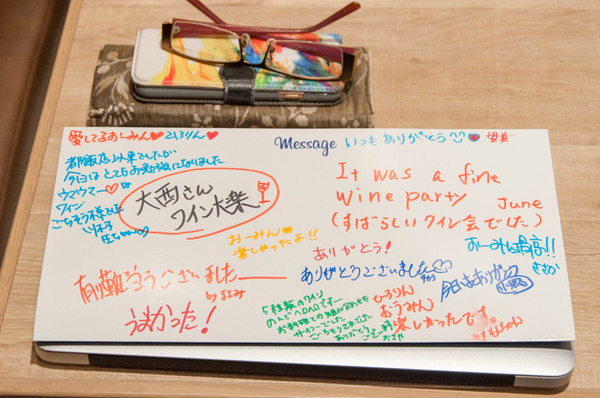 愛してるおーみん♥
Message いつもありがとう
望美
都飯店以来でしたが
今日はとてもお勉強になりました
ウマウマー♥な
ワイン
ごちそう様でした
大西さん
ワイン大楽
It was a fine
wine party
June
(すばらしいワイン会でした)
おーみん♥
楽しかったよ!!
ありがとう!
おーみん最高!!
有難うございました
by まさみ
ありがとうございました
今日もありがとう
うまかった!
5種類のワイン
のんでヘロヘロです
お料理との組み合わせも
サイコーでした
ごちそうさまでした
ありがとう
ひろりん
おうみん
楽しかったです。